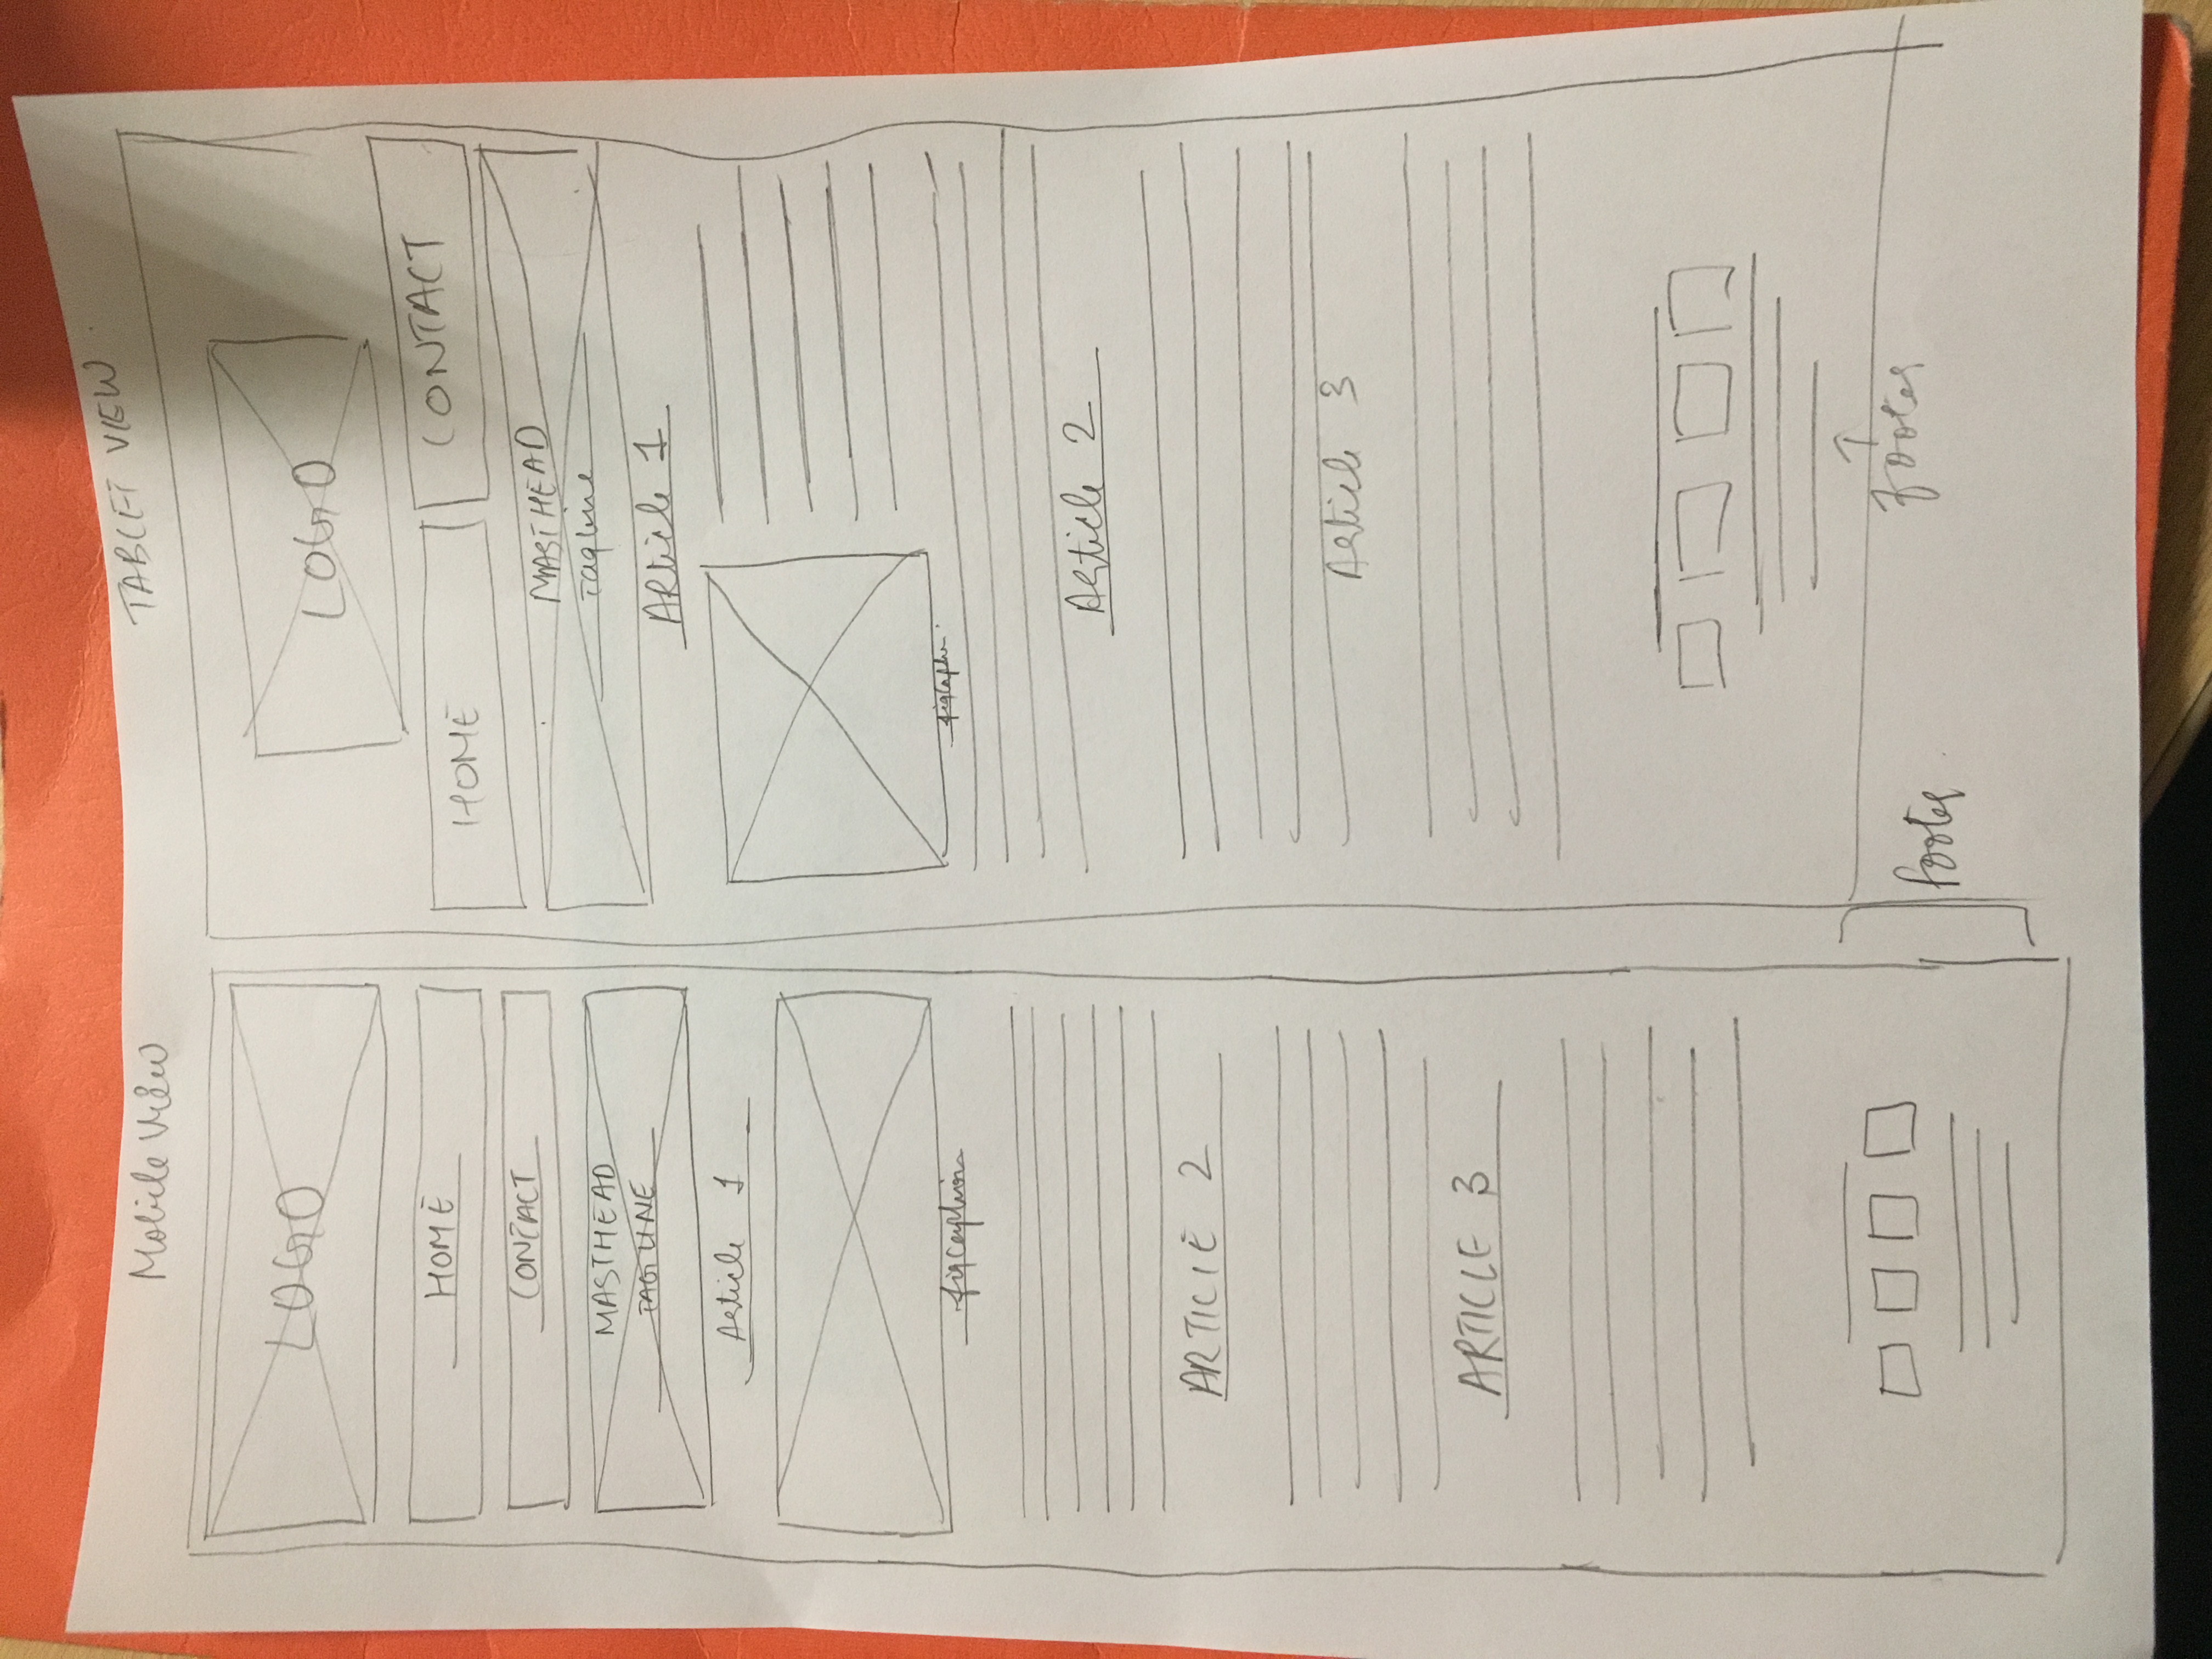 Mobile View
LOGO
HOME
CONTACT
MASTHEAD
TAGLINE
Article 1
figcaption
ARTICLE 2
ARTICLE 3
footer
TABLET VIEW
LOGO
HOME
CONTACT
MASTHEAD
Tagline
ARticle 1
Article 2
Article 3
footer